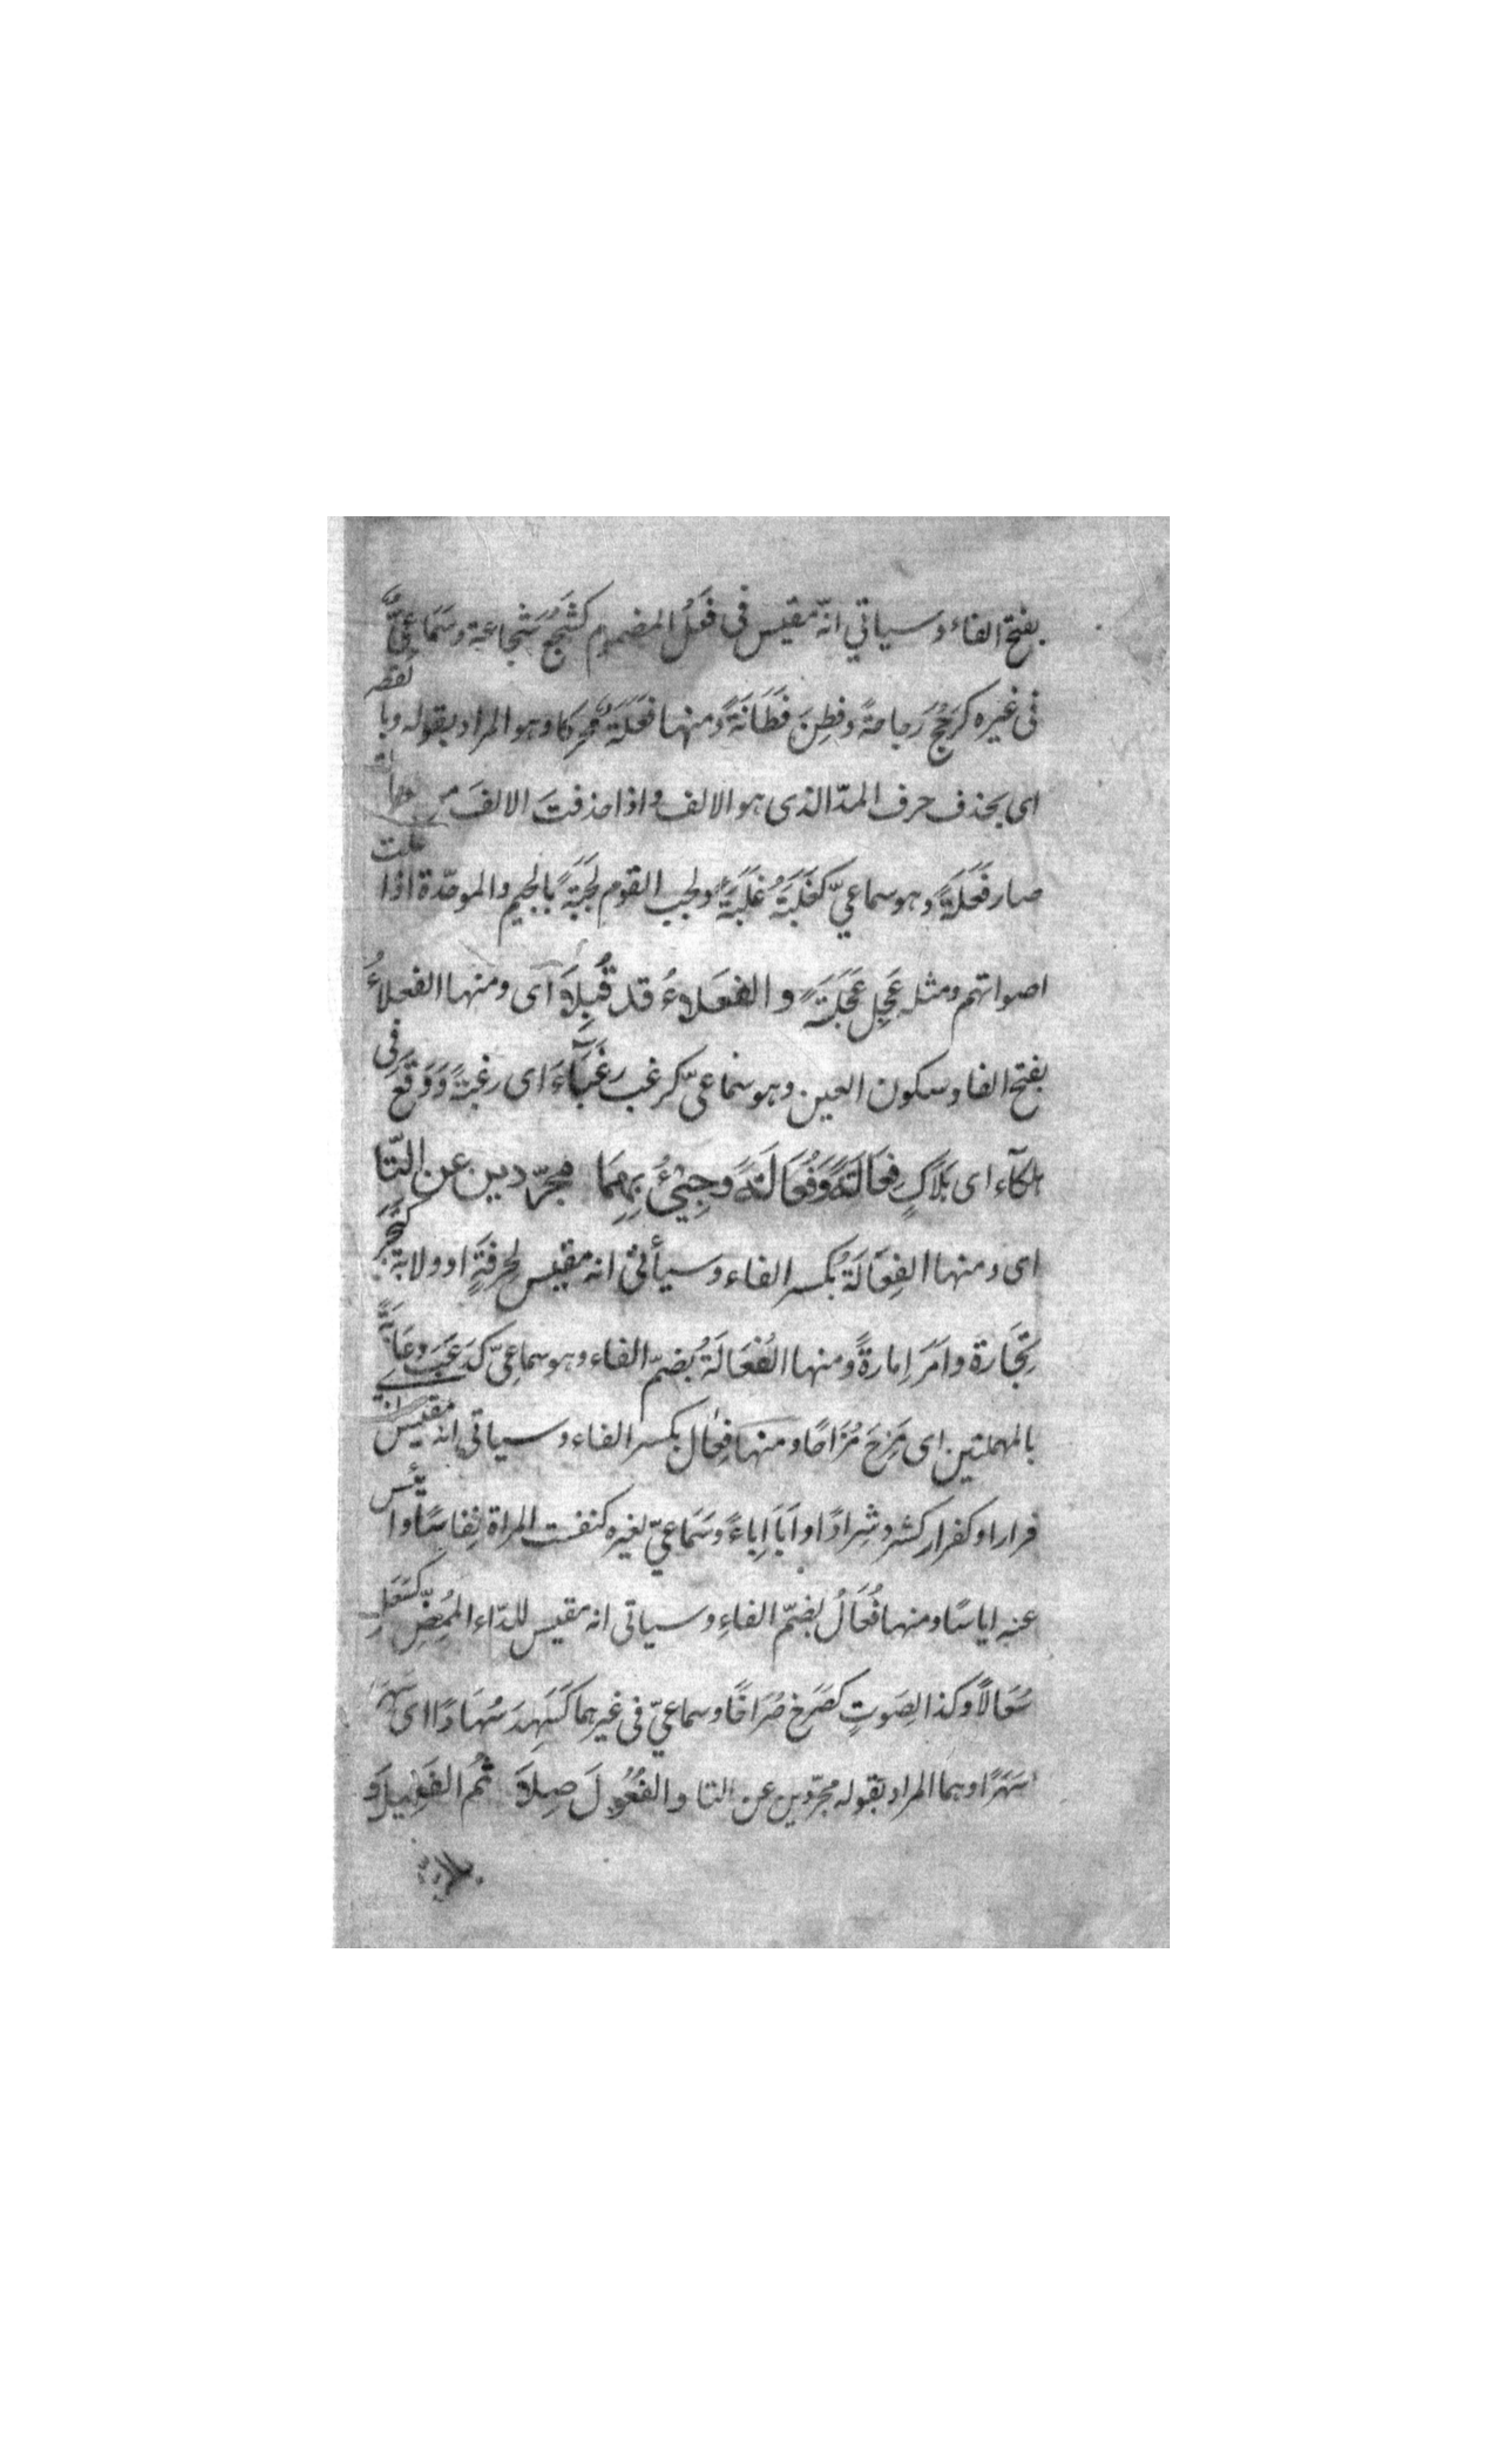 بفتح الفاء وسياتي انّه مقيس فى فَعُلَ المضموم كشَجُعَ شَجاعة وسَمَاعيٌّ
فى غيره كرَجَحَ رَجاحةً وفطِنَ فَطَانَةً ومنها فَعَلَةٌ محركا وهو المراد بقوله وبالقصر
اى بحذف حرف المدّ الذى هو الالف واذا حذفتَ الالفَ من
صار فَعَلَةً وهو سماعيّ كغلَبَهُ غَلَبَةً ولجب القوم لَجَبَةً بالجيم والموحّدة اذا علت
اصواتهم ومثله عَجِلَ عَجَلَةً والفَعلاءُ قد قُبِلاَ اى ومنها الفعلاءُ
بفتح الفا وسكون العين وهو سماعىّ كرغب رَغْبَآءَ اى رغبةً وَوَقَعَ فى
هلكآء اى هَلاكٍ فِعَالَةٌ وَفُعَالَةٌ وَجِئْ بِهِمَا مجرّدين عن التّا
اى ومنها الفِعَالَةُ بكسر الفاء وسيأتى انه مقيس لحِرفَةٍ او ولاية كتَجَرَ
تِجَارة وامَرَ اِمارةً ومنها الفُعَالَةُ بضمّ الفاء وهو سماعىّ كدَعَبَ دُعَابَةً
بالمهملتين اى مَزَحَ مُزَاحًا ومنها فِعَال بكسر الفاء وسياتى انه مقيس لآبى
فرارا وكفرار كشرد شِرادًا وابَا اِباءً وسَمَاعيّ لغيره كنفست المراة نِفاسًا وايس
عنه اياسًا ومنها فُعَالُ بضمّ الفاءِ وسياتى انه مقيس للدّاء المُمِضّ كسَعَلَ
سُعَالاً وكذا لصَوتٍ كصَرَخ صُرَاخًا وسماعيّ فى غيرهما كَسَهِدَ سُهَادًا اى سَهِرَ
سَهَرًا وهما المراد بقوله مجرّدين عن التا والفُعُولَ صِلاَ ثُم الفَعِيلَ وَ